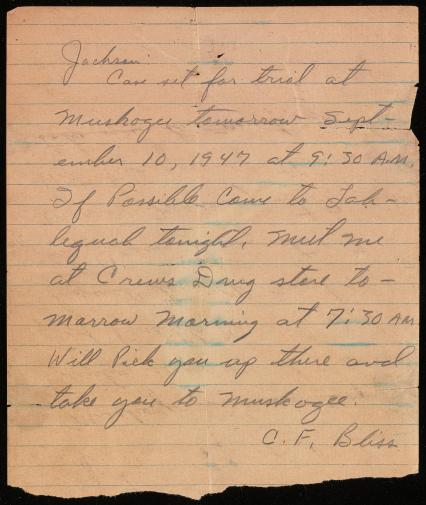 Jackson
Case set for trial at
Muskogee tomorrow Sept-
ember 10, 1947 at 9:30 A.M.
If Possible Come to Tah-
lequah tonight. Meet me
at Crews Drug store to-
morrow Morning at 7:30 AM
Will Pick you up there and
take you to Muskogee.
C. F. Bliss